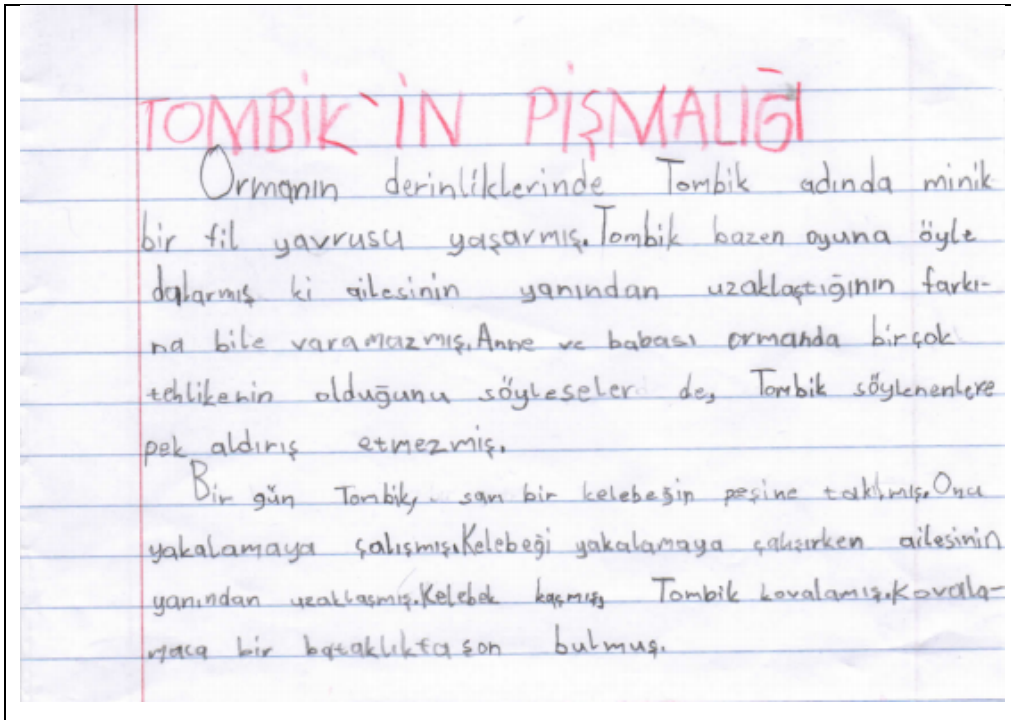 TOMBİK'İN PİŞMALIĞI
Ormanın derinliklerinde Tombik adında minik
bir fil yavrusu yaşarmış. Tombik bazen oyuna öyle
dalarmış ki ailesinin yanından uzaklaştığının farkı-
na bile varamazmış. Anne ve babası ormanda birçok
tehlikenin olduğunu söyleseler de, Tombik söylenenlere
pek aldırış etmezmiş.
Bir gün Tombik, sarı bir kelebeğin peşine takılmış. Onu
yakalamaya çalışmış. Kelebeği yakalamaya çalışırken ailesinin
yanından uzaklaşmış. Kelebek kaçmış, Tombik kovalamış. Kovala-
maca bir bataklıkta son bulmuş.